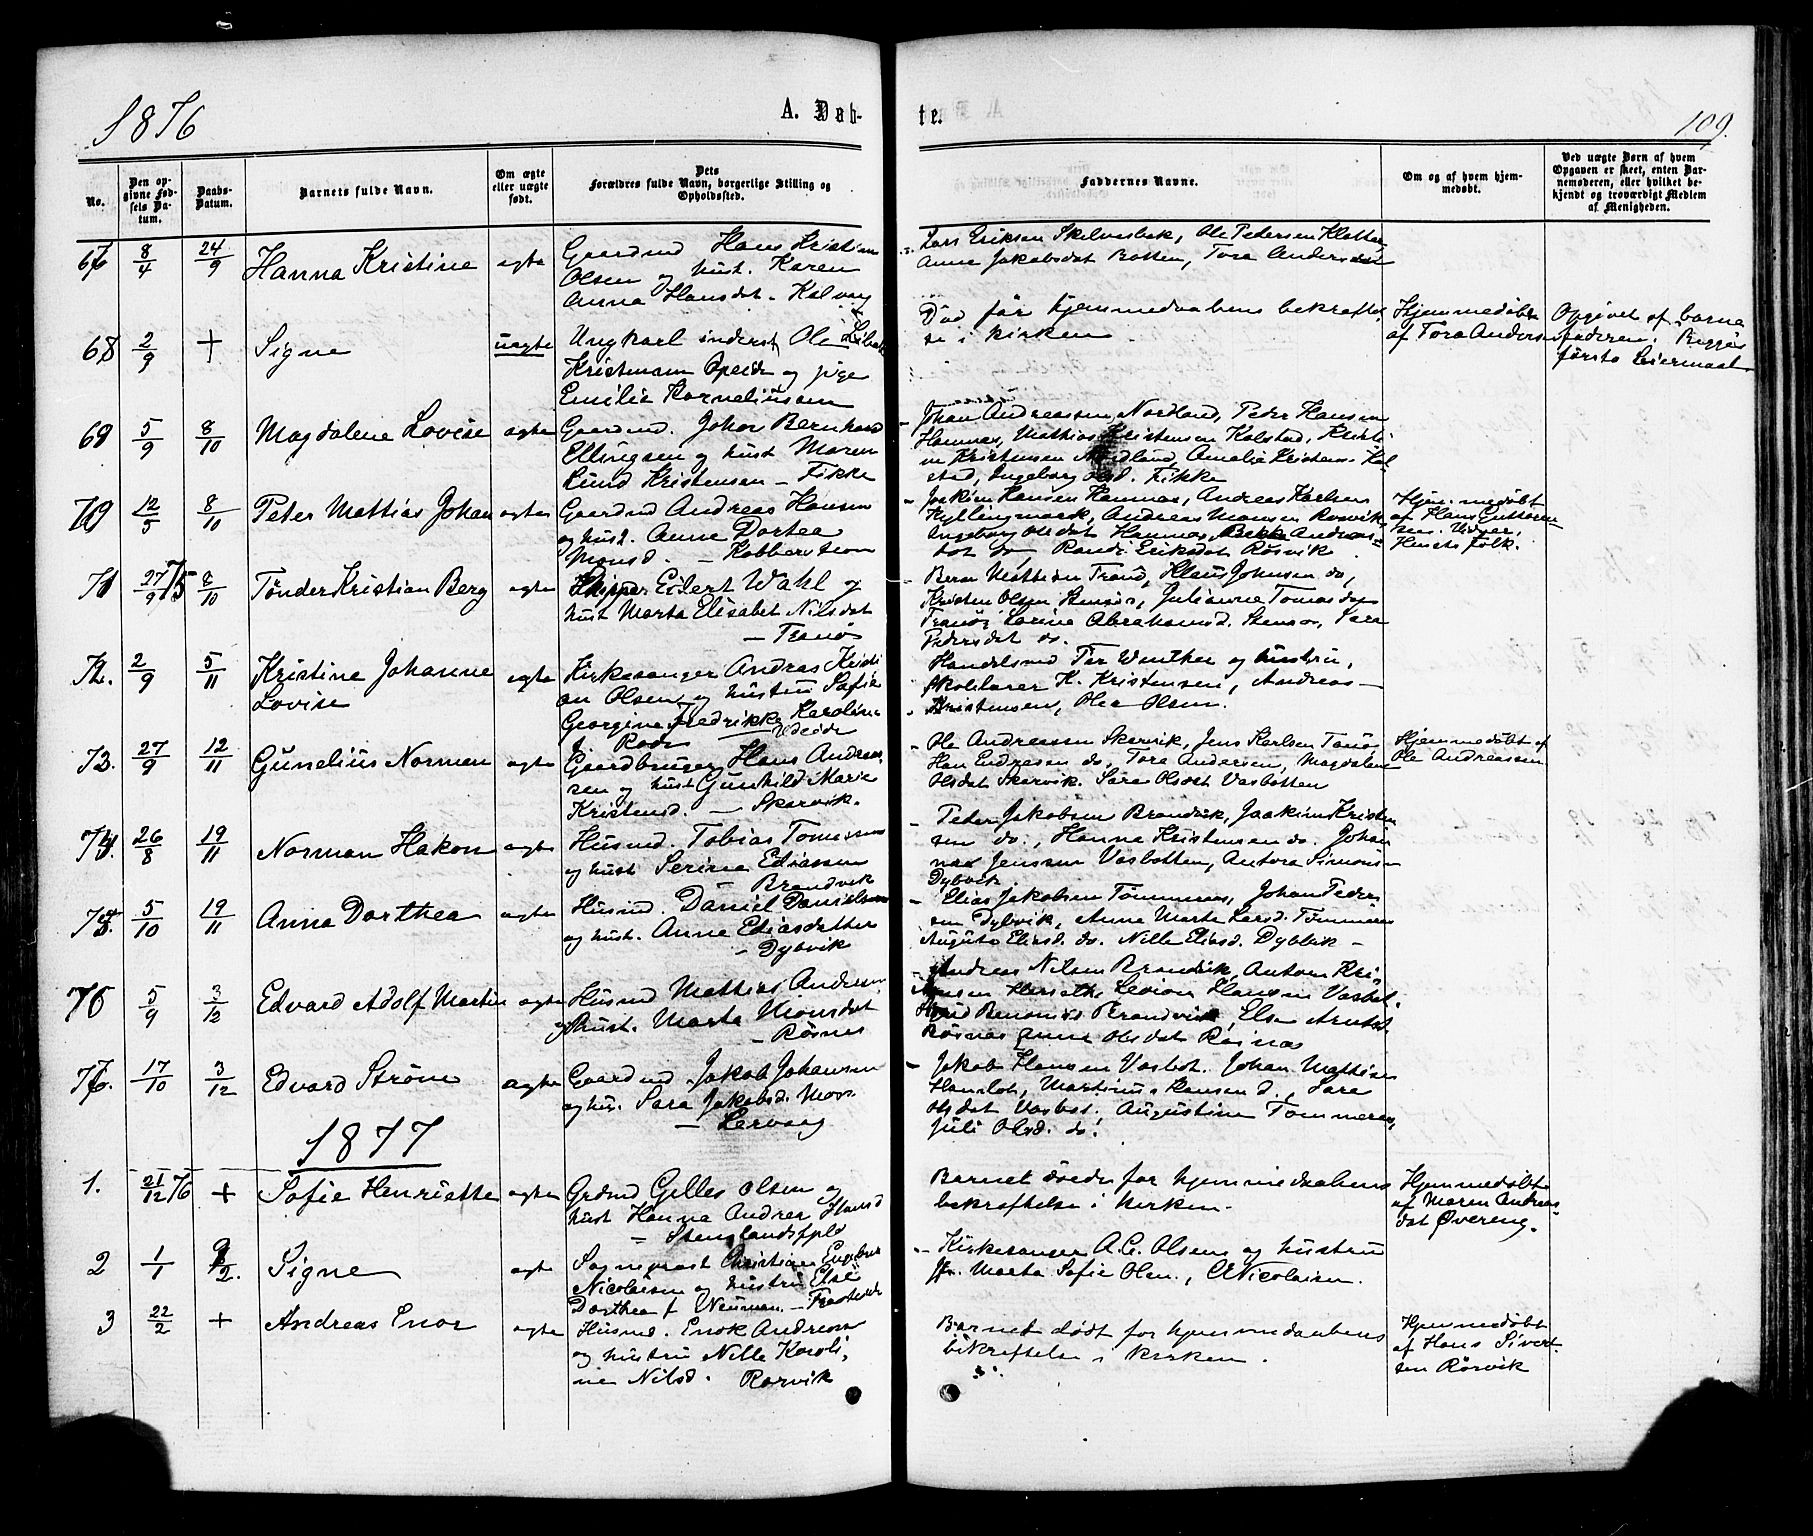 1876
A. Døb-
te.
109.
No.
Den op-
givne Fød-
sels Da-
tum.
Daabs-
Datum.
Barnets fulde Navn.
Om ægte
eller uægte
født.
Dets
Forældres fulde Navn, borgerlige Stilling og
Opholdssted.
Faddernes Navne.
Om og af hvem hjem-
medøbt.
Ved uægte Børn af hvem
Opgaven er skeet, enten Bar-
nemoderen, eller hvilket be-
kjendt og troværdigt Medlem
af Menigheden.
67 8/4 24/9 Hanna Kristine ægte Gaardmd Hans Kristian
Olsen og hust. Karen
Anna Hansdat. Kalvaag
Lars Eriksen Skilvasbak, Ole Pedersen
Anne Jakobsdat Botten, Tora Andersdat
68 2/9 + Signe uægte Ungkarl inderst Ole
Kristensen Opeide og pige
Emilie Korneliussen
Død før hjemmedaabens bekræftel
se i kirken
Hjemmedøbt
af Tora Anders
Opgivet af barne
faderen. Begges
første Leiermaal
69 5/9 8/10 Magdalene Lovise ægte Gaardmd. Johan Bernhard
Ellingsen og hust Maren
Lund Kristensen - Fikke
Johan Andreassen Nordland, Peder Hansen
Hamnes, Mathias Kristensen Kalstad, Kristi
ne Kristensen Nordland, Amalie Kristens. Kal
stad, Ingeborg Olsd. Fikke
70 12/5 8/10 Peter Mattias Johan ægte Gaardmd Andreas Hansen
og hust. Anne Dortea
Monsd. -
Joakim Hansen Hamnes, Andreas
Kyllingmark, Andreas Monsen Rosvik,
Ingeborg Olsdat Hamnes, Andreas
dat do Randi Eriksdat Røsvik
Hjemmedøbt
af Hans Guttorm
sen
71 27/9 75 8/10 Tønder Kristian Berg ægte Skipper Eilert Wahl og
hust Marta Elisabet Nilsdat
- Tranø
Bern Mathisen Tranø, Klaus Johnsen do,
Kristen Olsen Stensø, Julianne Tomasd
Tranø, Larine Abrahamsd. Stensø, Sara
Pedersdat do.
72. 2/9 5/11 Kristine Johanne
Lovise
ægte Kirkesanger Andras Kristi
an Olsen og hustru Sofie
Georgine Fredrikke Karoline
f. Rode
Handelsmd Per Winther og hustru,
Skolelærer K. Kristensen, Andreas
Kristensen, Olea Olsen.
73. 27/9 12/11 Gunelius Norman ægte Gaardbruger Hans Andreas
sen og hust Gunhild Marie
Kristensd. - Skarvik.
Ole Andreassen Skarvik, Jens Karlsen Tranø
Han Endresen do, Tora Andersen, Magdalene
Olsdat Skarvik. Sara Olsdat Vasbotten
Hjemmedøbt af
Ole Andreassen
74. 26/8 19/11 Norman Hakon ægte Husmd. Tobias Tomassen
og hust Serine Eliassen
Brandvik
Peter Jakobsen Brandvik, Joakim Kristen
sen do., Hanna Kristensen do. Johan
nes Jenssen Vasbotten, Antora Simonsen
Dybvik
75. 5/10 19/11 Anna Dorthea ægte Husmd. Daniel Danielsen
og hust. Anne Eliasdatter
- Dybvik
Elias Jakobsen Tømmeraas, Johan Peder
sen Dybvik, Anne Marta Larsd. Tømmeraas
Augusta Eliasd. do. Nille Eliasd. Dybvik -
76 5/9 3/12 Edvard Adolf Martin ægte Husmd Mathias Andersen
og hust. Marta Monsdat
- Røsnes
Andreas Nilsen Brandvik, Anton Kri
Hansen Vasbot.
Brandvik, Else Arntsd.
Røsnes Anne Olsdat Røsnes
76. 17/10 3/12 Edvard Strøm ægte Gaardmd. Jakob Johansen
og hus. Sara Jakobsd. Moos
- Lervaag
Jakob Hansen Vasbot. Johan Mathisen
Martinus Hansen d., Sara
Olsdat Vasbot. Augustine Tømmeraas,
Juli Olsd. do.
1877
1. 21/12 76 + Sofie Henriette ægte Grdmd Gilles Olsen og
hust Hanna Andrea Hansd
- Stenslandsfjeld
Barnet døde før hjemmedaabens
bekræftelse i kirken.
Hjemmedøbt
af Maren Andreas
dat Øvereng.
2 1/1 9/2. Signe ægte Sogneprest Christian Engebret
Nicolaisen og hustru Else
Dorthea f Neuman. - Presteide
Kirkesanger A. C. Olsen og hustru
Fr. Marta Sofie Olsen., C Nicolaisen.
3 22/2 + Andreas Enor ægte Husmd. Enok Andreasen
og hustru Nille Karoli,
ne Nilsd. Rørvik
Barnet dødt før hjemmedaabens
bekræftelse i kirken.
Hjemmedøbt
af Hans Sivert
sen Rørvik